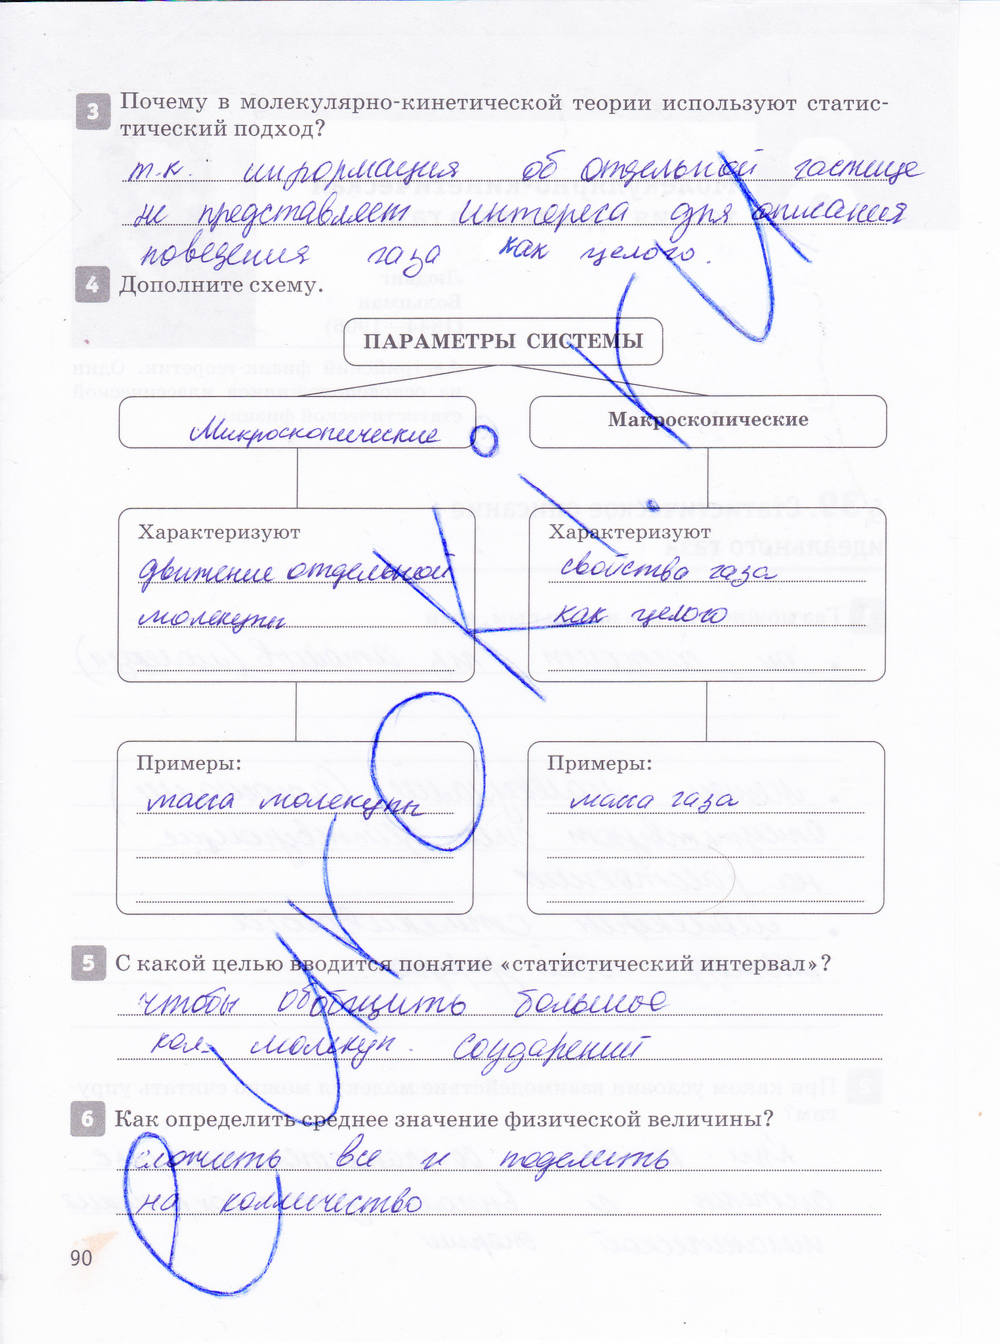 3 Почему в молекулярно-кинетической теории используют статис-
тический подход?
т.к. информация об отдельной частице
не представляет интереса для описания
поведения газа как целого.
4 Дополните схему.
ПАРАМЕТРЫ СИСТЕМЫ
Микроскопические
Макроскопические
Характеризуют
движение отдельной
молекулы
Характеризуют
свойства газа
как целого
Примеры:
масса молекулы
Примеры:
масса газа
5 С какой целью вводится понятие «статистический интервал»?
чтобы обобщить большое
кол. молекул. соударений
6 Как определить среднее значение физической величины?
сложить все и поделить
на колличество
90